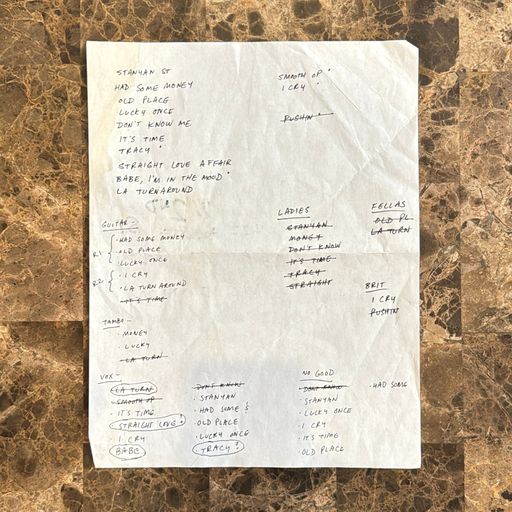 STANYAN ST
HAD SOME MONEY
OLD PLACE
LUCKY ONCE
DON'T KNOW ME
IT'S TIME
TRACY
STRAIGHT LOVE AFFAIR
BABE, I'M IN THE MOOD
LA TURNAROUND
SMOOTH OP
I CRY
PUSHIN'
GUITAR -
R1 { · HAD SOME MONEY
· OLD PLACE
LUCKY ONCE
R2 { · I CRY
· LA TURNAROUND
· IT'S TIME
LADIES
STANYAN
MONEY
DON'T KNOW
IT'S TIME
TRACY
STRAIGHT
FELLAS
OLD PL
LA TURN
BRIT
I CRY
PUSHIN
TAMBO -
· MONEY
· LUCKY
· LA TURN
VOX -
LA TURN
· SMOOTH OP
· IT'S TIME
STRAIGHT LOVE
· I CRY
BABE
DON'T KNOW
· STANYAN
· HAD SOME $
OLD PLACE
· LUCKY ONCE
· TRACY
NO GOOD
DON'T KNOW
· STANYAN
· LUCKY ONCE
· I CRY
· IT'S TIME
· OLD PLACE
· HAD SOME